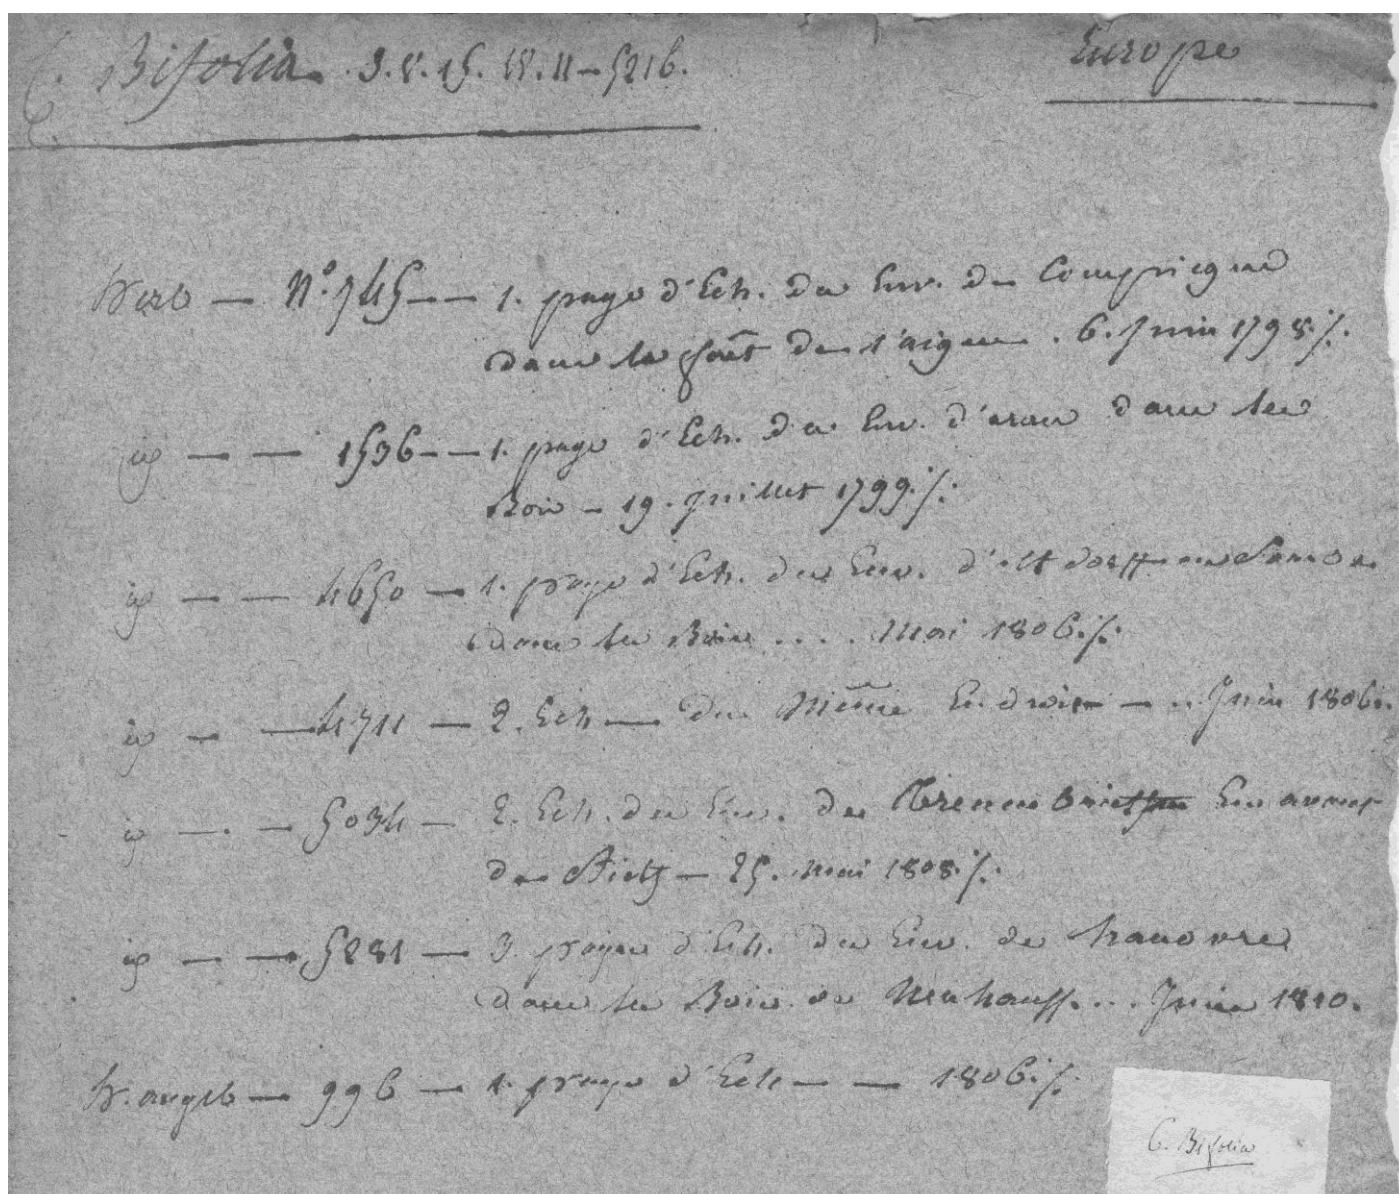 C. Bifolia. 3.8.15. 18.11 – 5216.
Europe
herb — N.° 745 — 1. page d'Ech. des Env. de Compiegne
dans la forêt de l'aigue. 6. Juin 1798./.
— — 1536 — 1. page d'Ech. des Env. d'arau dans les
Bois – 19. Juillet 1799./.
— — 4650 — 1. page d'Ech. des Env. d'altdorff en
dans les Bois . . . . Mai 1806./.
— — 4711 — 2. Ech — du Même Endroit — .. Juin 1806.
— . — 5034 — 2. Ech. des Env. de En avant
de — 25. mai 1808./.
— — 5281 — 3. pages d'Ech. des Env. de hanovre
dans les Bois de . . . Juin 1810.
h. angl — 996 — 1. page d'Ech — — 1806./.
C. Bifolia